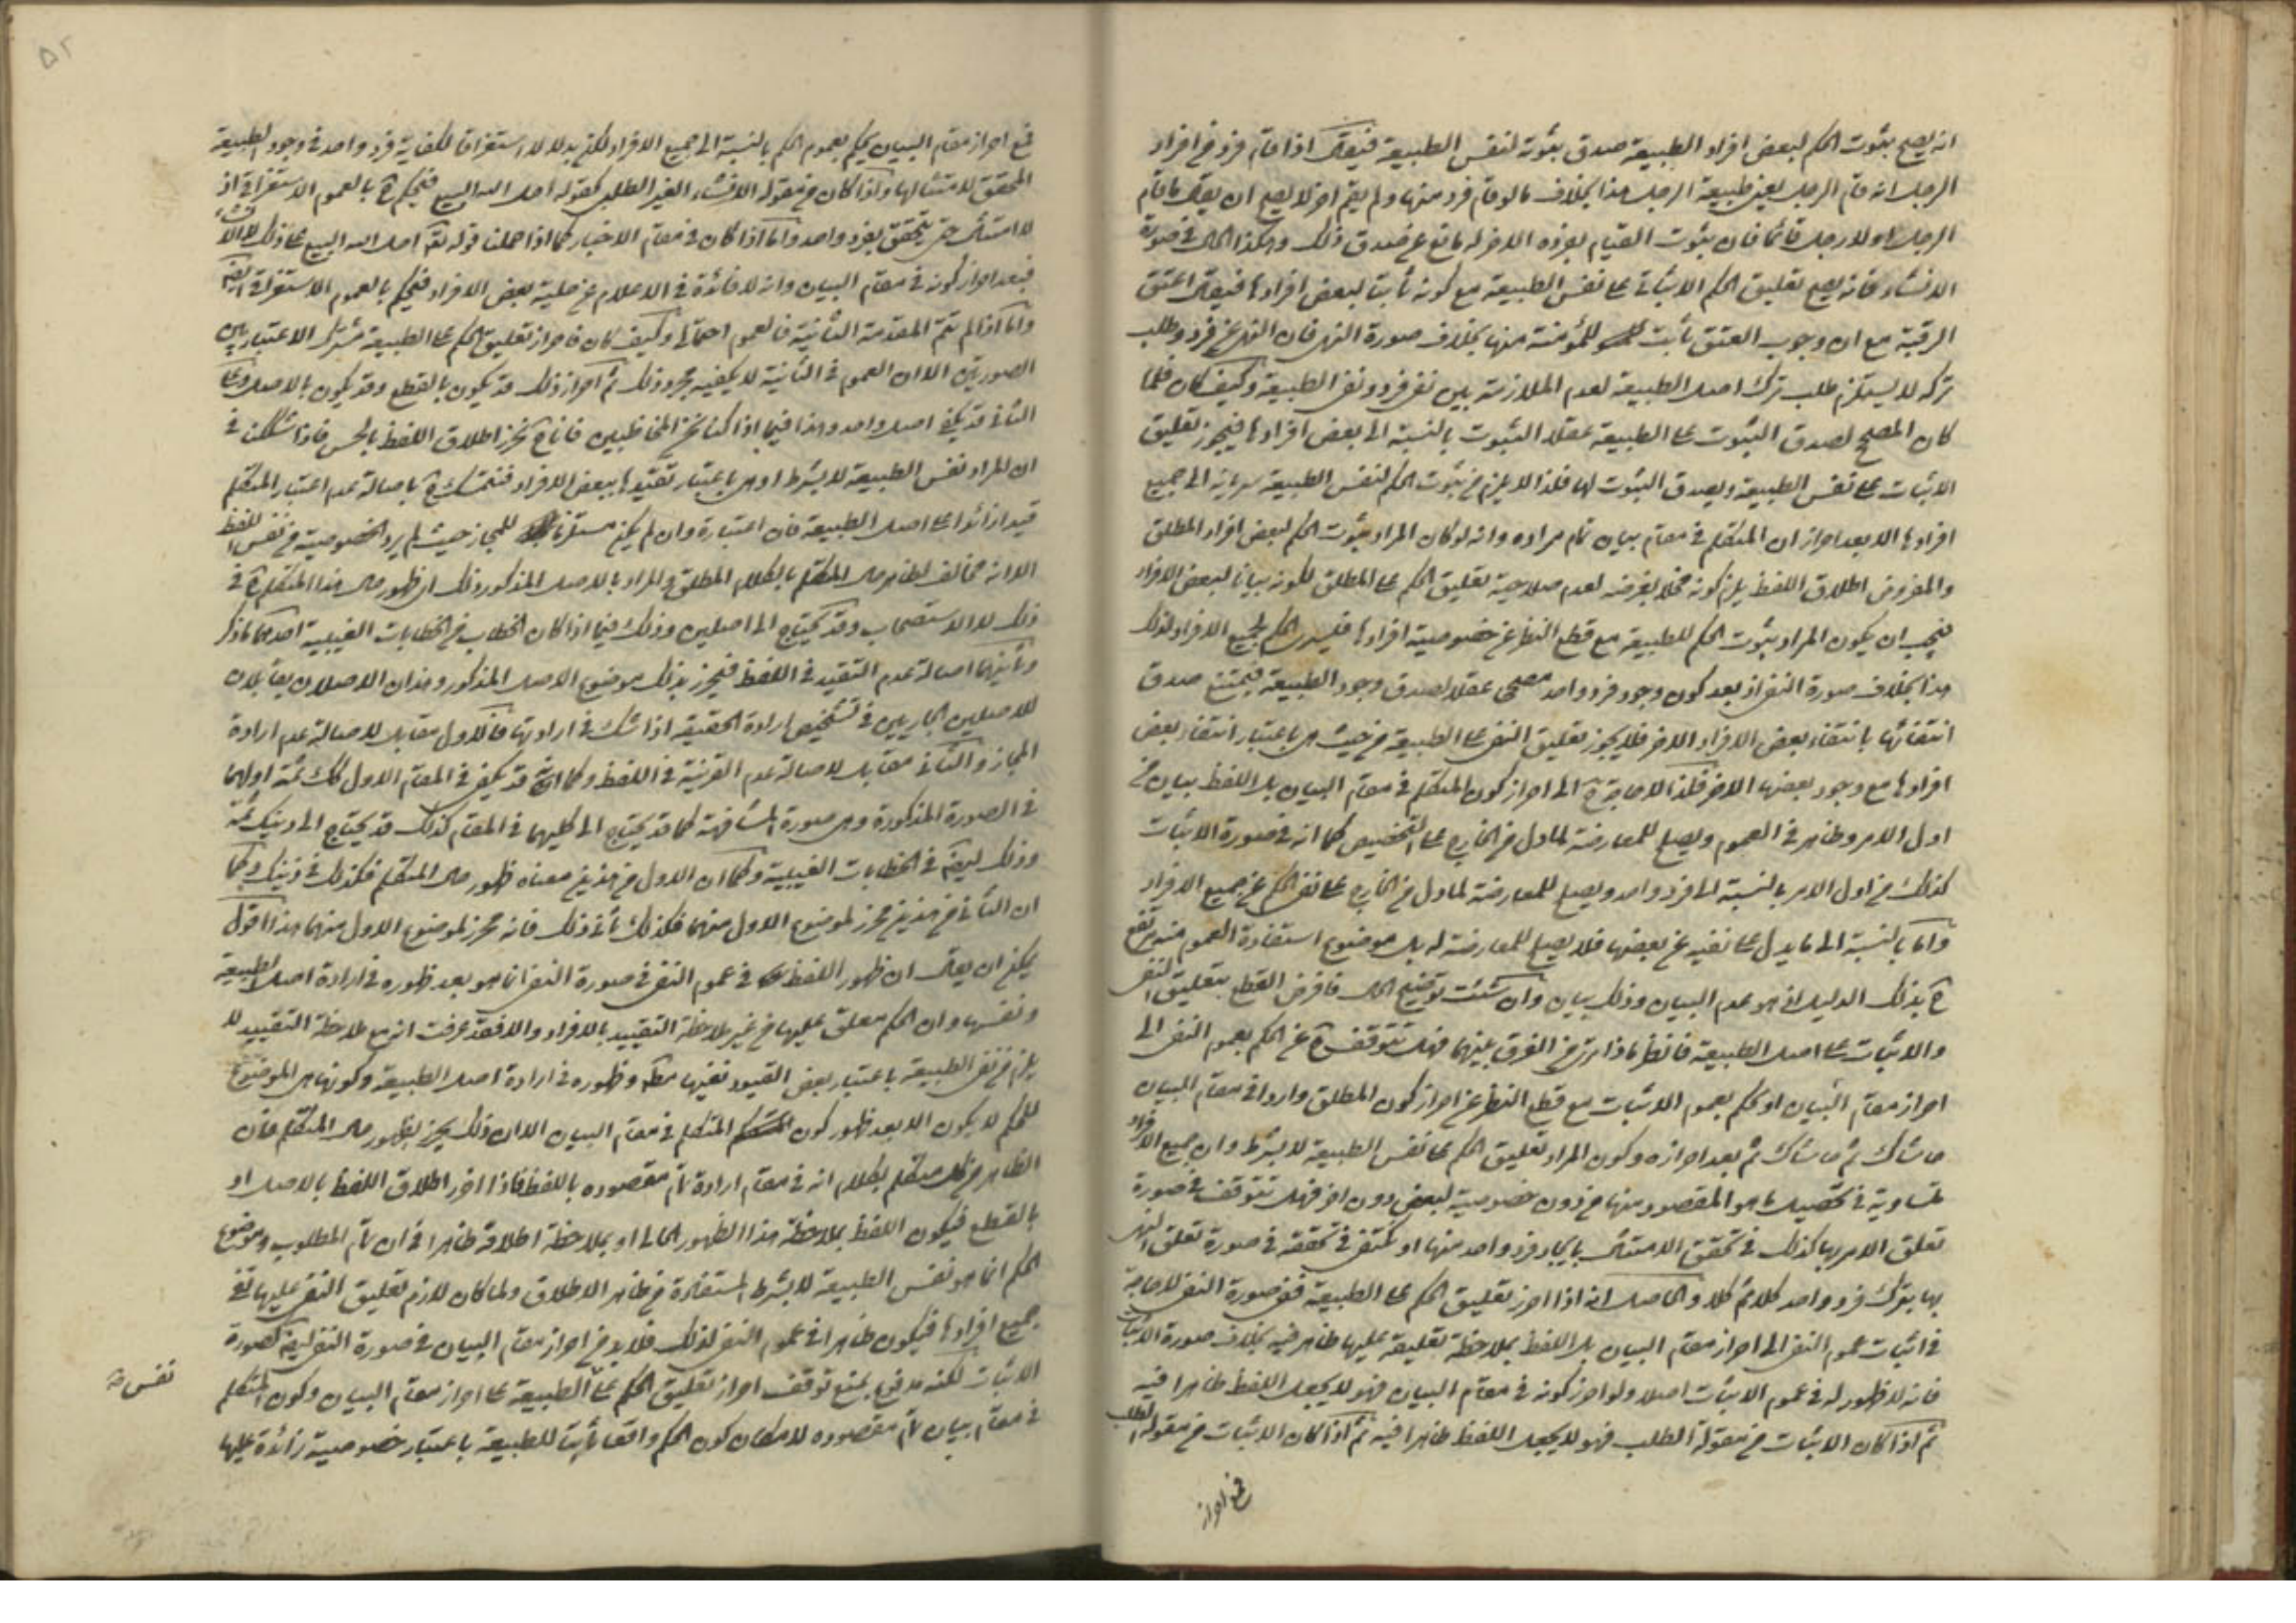 انه يصح بثبوت الحكم لبعض افراد الطبيعة صدق بثوته لنفس الطبيعة فيقال اذا قام فرد من افراد
الرجل انه قام الرجل يعنى طبيعة الرجل هذا بخلاف ما لو قام فرد منها ولم يقم اخر لا يصح ان يقال ما قام
الرجل او لا رجل قائما فان ثبوت القيام لفرده الاخر له مانع عن صدق ذلك وهكذا الحال في صورة
الانشاء فانه يصح تعليق الحكم الاثباتى على نفس الطبيعة مع كونه ثابتا لبعض افرادها فيقال اعتق
الرقبة مع ان وجوب العتق ثابت للمؤمنة منها بخلاف صورة النهى فان النهى عن فرد وطلب
تركه لا يستلزم طلب ترك اصل الطبيعة لعدم الملازمة بين نفى فرد ونفى الطبيعة وكيف كان فلما
كان المصحح لصدق الثبوت على الطبيعة عقلا الثبوت بالنسبة الى بعض افرادها فيجوز تعليق
الاثبات على نفس الطبيعة ويصدق الثبوت لها فلذا لا يلزم من ثبوت الحكم لنفس الطبيعة سريانه الى جميع
افرادها الا بعد احراز ان المتكلم في مقام بيان تمام مراده وانه لو كان المراد ثبوت الحكم لبعض افراد المطلق
والمفروض اطلاق اللفظ يلزم كونه مخلا بغرضه لعدم صلاحية تعليق الحكم على المطلق لكونه بيانا لبعض الافراد
فيجب ان يكون المراد ثبوت الحكم للطبيعة مع قطع النظر عن خصوصية افرادها فيسرى الحكم لجميع الافراد لذلك
هذا بخلاف صورة النفى اذ بعد كون وجود فرد واحد مصححا عقلا لصدق وجود الطبيعة فيمتنع صدق
انتفائها بانتفاء بعض الافراد الاخر فلا يجوز تعليق النفى على الطبيعة من حيث هى باعتبار انتفاء بعض
افرادها مع وجود بعضها الاخر فلذا لا حاجة ح الى احراز كون المتكلم في مقام البيان بل اللفظ بيان من
اول الامر وظاهر في العموم ويصلح للمعارضة لما دل من الخارج على التخصيص كما انه في صورة الاثبات
كذلك من اول الامر بالنسبة الى فرد واحد ويصلح للمعارضة لما دل من الخارج على نفى الحكم عن جميع الافراد
واما بالنسبة الى ما يدل على نفيه عن بعضها فلا يصلح للمعارضة له بل موضوع استفادة العموم منه يرتفع
ح بذلك الدليل اذ هو عدم البيان وذلك بيان وان شئت توضيح الحال فافرض القطع بتعليق النفى
والاثبات على اصل الطبيعة فانظر ماذا ترى من الفرق بينهما فهل تتوقف ح عن الحكم بعموم النفى الى
احراز مقام البيان او تحكم بعموم الاثبات مع قطع النظر عن احراز كون المطلق واردا في مقام البيان
حاشاك ثم حاشاك ثم بعد احرازه وكون المراد تعليق الحكم على نفس الطبيعة لا بشرط وان جميع الافراد
متساوية في تحصيل ما هو المقصود منها من دون خصوصية لبعض دون اخر فهل تتوقف في صورة
تعلق الامر بها كذلك في تحقق الامتثال بايجاد فرد واحد منها او تكتفى في تحققه في صورة تعلق النهى
بها بترك فرد واحد كلا ثم كلا والحاصل انه اذا احرز تعليق الحكم على الطبيعة ففى صورة النفى لا حاجة
في اثبات عموم النفى الى احراز مقام البيان بل اللفظ بملاحظة تعليقه عليها ظاهر فيه بخلاف صورة الاثبات
فانه لا ظهور له في عموم الاثبات اصلا ولو احرز كونه في مقام البيان فهو لا يجعل اللفظ ظاهرا فيه
ثم اذا كان الاثبات من مقولة الطلب فهو لا يجعل اللفظ ظاهرا فيه ثم اذا كان الاثبات من مقولة الطلب
فمع احراز
۵۲
فمع احراز مقام البيان يحكم بعموم الحكم بالنسبة الى جميع الافراد لكن بدلا لا استغراقا لكفاية فرد واحد في وجود الطبيعة
المحقق لامتثالها واذا كان من مقولة الانشاء الغير الطلبى كقوله احل الله البيع فيحكم ح بالعموم الاستغراقى اذ
لا امتثال حتى يتحقق بفرد واحد واما اذا كان في مقام الاخبار كما اذا حملنا قوله تعالى احل الله البيع على ذلك لا الانشاء
فبعد احراز كونه في مقام البيان وانه لا فائدة في الاعلام عن حلية بعض الافراد فيحكم بالعموم الاستغراقى ايضا
واما اذا لم تتم المقدمة الثانية فالعموم احتمالى وكيف كان فاحراز تعليق الحكم على الطبيعة مشترك الاعتبار بين
الصورتين الا ان العموم في الثانية لا يكفيه مجرد ذلك ثم احراز ذلك قد يكون بالقطع وقد يكون بالاصل وعلى
الثانى قد يكفى اصل واحد وهذا فيما اذا كنا نحن المخاطبين فانا ح نحرز اطلاق اللفظ بالحس فاذا شككنا في
ان المراد نفس الطبيعة لا بشرط او هى باعتبار تقييدها ببعض الافراد فنتمسك ح باصالة عدم اعتبار المتكلم
قيدا زائدا على اصل الطبيعة فان اعتباره وان لم يكن مستلزما للمجاز حيث لم يرد الخصوصية من نفس اللفظ
الا انه مخالف لظاهر حال المتكلم بالكلام المطلق والمراد بالاصل المذكور ذلك اى ظهور حال هذا المتكلم ح في
ذلك لا الاستصحاب وقد يحتاج الى اصلين وذلك فيما اذا كان الخطاب من الخطابات الغيبية احدهما ما ذكر
وثانيهما اصالة عدم التقييد في اللفظ فيحرز بذلك موضوع الاصل المذكور وهذان الاصلان يقابلان
للاصلين الجاريين في تشخيص ارادة الحقيقة اذا شك في ارادتها فالاول مقابل لاصالة عدم ارادة
المجاز والثانى مقابل لاصالة عدم القرينة في اللفظ وكما انه قد يكفى في المقام الاول كذلك ثمة اولهما
في الصورة المذكورة وهى صورة المشافهة كما قد يحتاج الى كليهما في المقام كذلك قد يحتاج الى ذينك ثمة
وذلك ايضا في الخطابات الغيبية وكما ان الاول من هذين معناه ظهور حال المتكلم فكذلك في ذينك وكما
ان الثانى من هذين محرز لموضوع الاول منهما فكذلك ثانى ذلك فانه محرز لموضوع الاول منهما هذا اقول
يمكن ان يقال ان ظهور اللفظ في عموم النفى في صورة النفى انما هو بعد ظهوره في ارادة اصل الطبيعة
ونفسها وان الحكم معلق عليها من غير ملاحظة التقييد بالافراد والا فقد عرفت انه مع ملاحظة التقييد لا
يلزم من نفى الطبيعة باعتبار بعض القيود نفيها مطلقا وظهوره في ارادة اصل الطبيعة وكونها هى الموضوع
للحكم لا يكون الا بعد ظهور كون المتكلم في مقام البيان الا ان ذلك يحرز بظهور حال المتكلم فان
الظاهر من كل متكلم بكلام انه في مقام ارادة تمام مقصوده باللفظ فاذا احرز اطلاق اللفظ بالاصل او
بالقطع فيكون اللفظ بملاحظة هذا الظهور الحالى او بملاحظة اطلاقه ظاهرا في ان تمام المطلوب وموضوع
الحكم انما هو نفس الطبيعة لا بشرط المستفادة من ظاهر الاطلاق ولما كان لازم تعليق النفى عليها نفى
جميع افرادها فيكون ظاهرا في عموم النفى لذلك فلا بد من احراز مقام البيان في صورة النفى ايضا كصورة
الاثبات لكنه مدفوع بمنع توقف احراز تعليق الحكم على الطبيعة على احراز مقام البيان وكون المتكلم
في مقام بيان تمام مقصوده لامكان كون الحكم واقعا ثابتا للطبيعة باعتبار خصوصية زائدة عليها
نفس